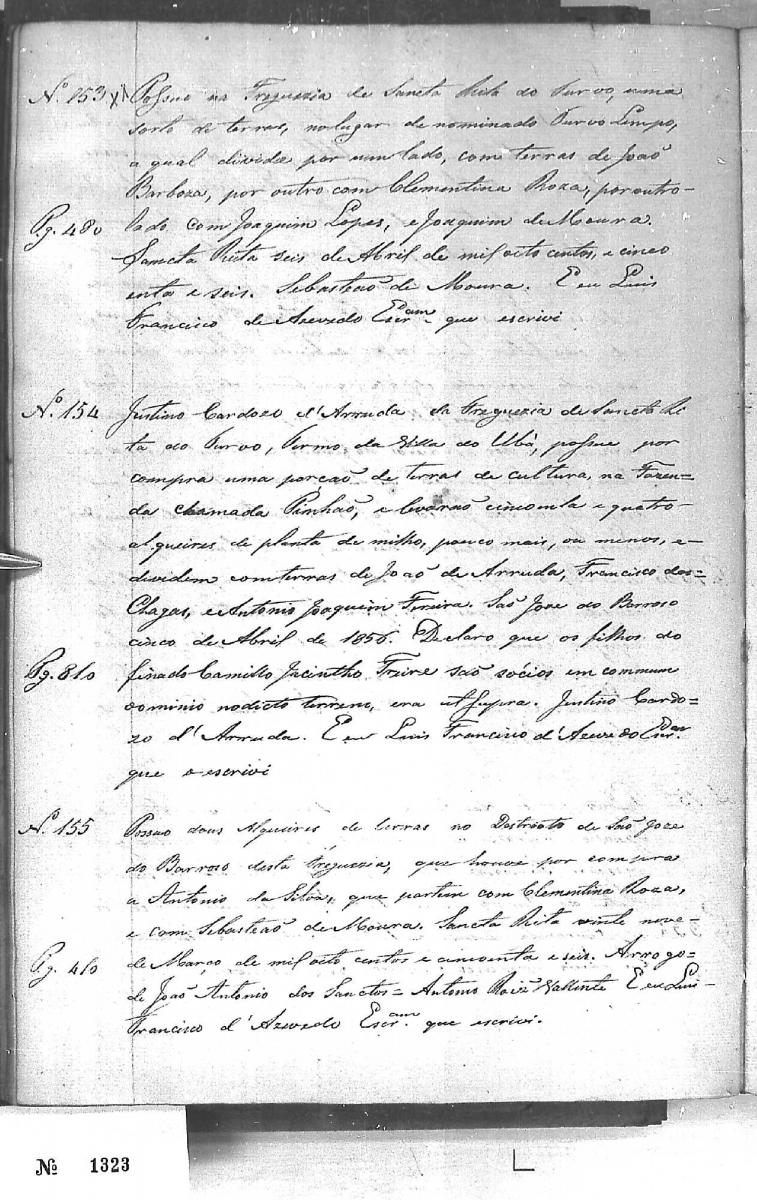 Nº 153 Possuo na Freguezia de Sancta Rita do Turvo, uma
sorte de terras, no lugar de nominado Turvo Limpo,
a qual divide por um lado, com terras de Joaõ
Barboza, por outro com Clementina Roza, por outro-
Pg. 480 lado com Joaquim Lopes, e Joaquim de Moura.
Sancta Rita seis de Abril de mil oito centos, e cinco
enta e seis. Sebasteaõ de Moura. E eu Luis
Francisco de Azevedo Escr.am que escrivi
Nº 154 Justino Cardozo d'Arruda da Freguezia de Sancta Ri
ta do Turvo, Termo da Villa do Ubá, possue por
compra uma porçaõ de terras de cultura, na Fazen=
da chamada Pinhaõ, e levaraõ cincoenta e quatro
alqueires de planta de milho, pouco mais, ou menos, e-
dividem com terras de Joaõ de Arruda, Francisco das=
Chagas, e Antonio Joaquim Ferreira. Saõ Joze do Barroso
cinco de Abril de 1856. Declaro que os filhos do
Pg. 810 finado Camillo Jacintho Freire saõ sócios em commum
dominio no dicto terreno, era ut supra. Justino Cardo=
zo d'Arruda. E eu Luis Francisco d'Azevedo Escr.am
que o escrivi
Nº 155 Possuo dous Alqueires de terras no Destricto de Saõ Joze
do Barroso desta Freguezia, que houve por compra
a Antonio da Silva, que partem com Clementina Roza,
e com Sebasteaõ de Moura. Sancta Rita vinte nove-
Pg. 410 de Março de mil oito centos e cincoenta e seis. Arrogo-
de Joaõ Antonio dos Sanctos= Antonio Roiz Vallente E eu Luis-
Francisco d'Azevedo Escr.am que escrivi.
Nº 1323